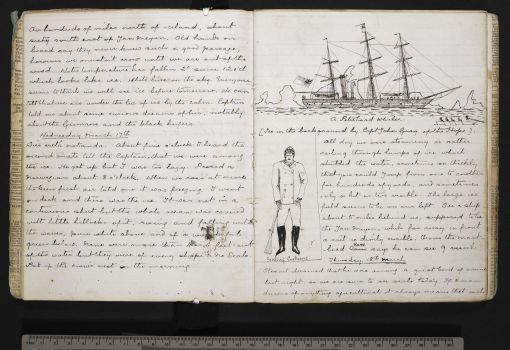 hundreds of miles north of Iceland, about
sixty south east of Jan Meyen. Old hands on
board say they never knew such a good passage,
however we mustn't crow until we are out of the
wood. Water temperature has fallen 2° since 12 o'clock
which looks like ice. White line on the sky. Everyone
seems to think we will see ice before tomorrow. We can
tell that we are under the lee of ice by the calm. Captain
told me about some curious dreams of his, notably
about the Germans and the black heifers.
Wednesday March 17th
Dies creta notanda. About five o'clock I heard the
second mate tell the Captain that we were among
the ice. He got up but I was too lazy. Passed a
Norwegian about 8 o'clock. When we rose at nine
o'clock fresh air told one it was freezing. I went
on deck and there was the ice. It was not in a
continuous sheet but the whole ocean was covered
with little hillocks of it, rising and falling with
the waves, pure white above and of a wonderful
green below. None were more than feet out
of the water but they were of every shape. No Seals.
Put up the crow's nest in the morning.
A Peterhead Whaler
(Ice in the background by Capt John Gray of the Hope)
All day we were steaming or rather
sailing through lumps of ice which
studded the water, sometimes so thickly
that you could jump from one to another
for hundreds of yards, and sometimes
only or two visible. The large ice
field seems to be on our left. See a ship
about 5 miles behind us, supposed to be
the Jan Meyen, while far away in front
a sail is dimly visible. From the mast
head Colin says he can see 9 vessels.
Sealing Costume
Thursday 18th March
Steward dreamed that he was among a great herd of swine
last night, so we are sure to see seals today. If a man
dreams of anything agricultural it always means that sort